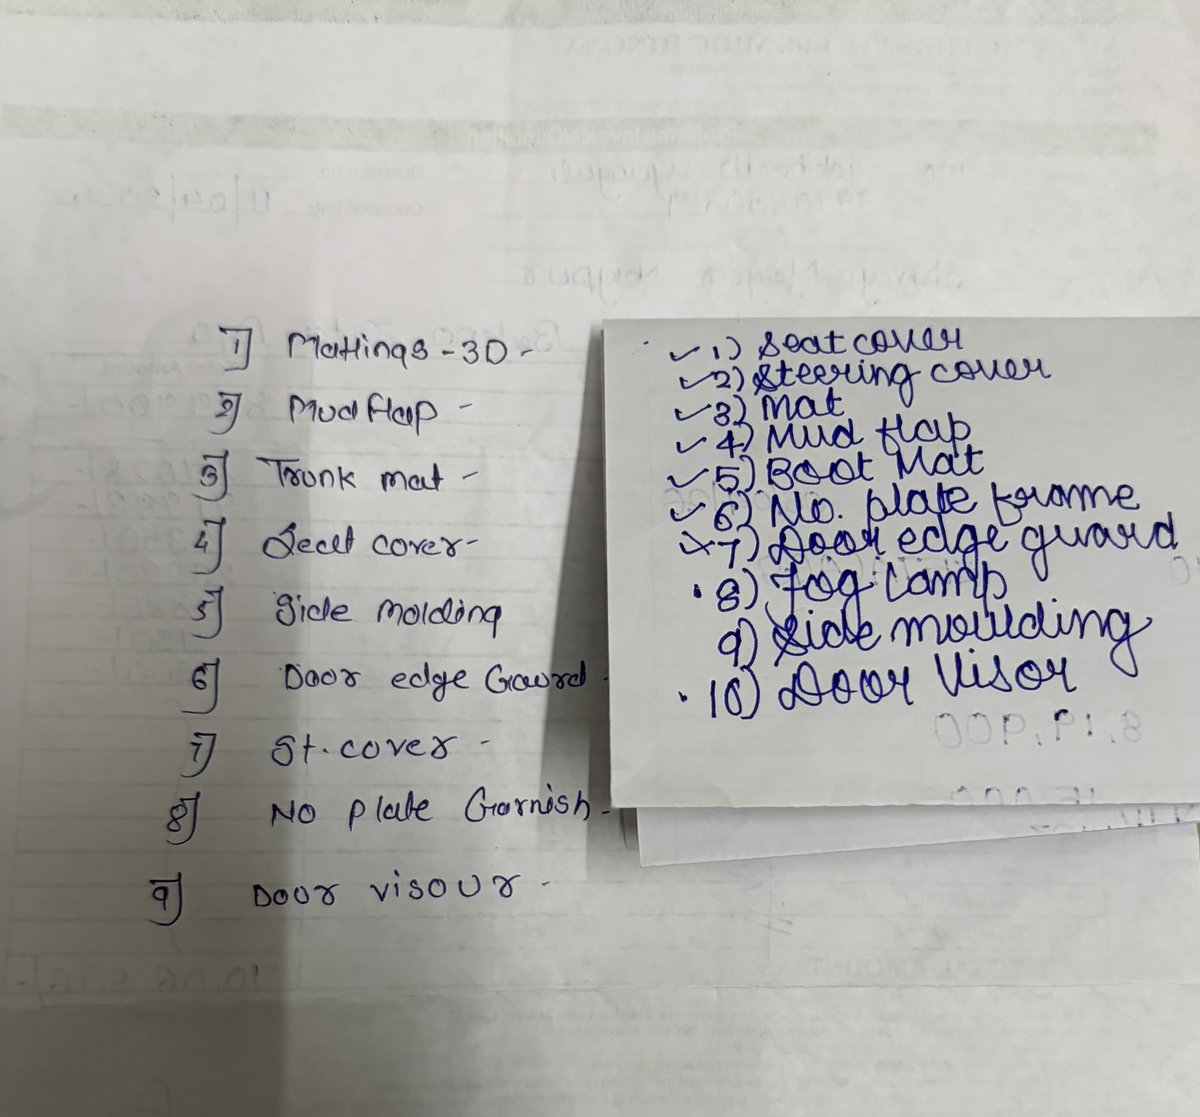 1] Mattings - 3D -
2] Mud flap -
3] Trunk mat -
4] Seat cover -
5] Side molding
6] Door edge Gaurd -
7] St. cover -
8] No plate Garnish -
9] Door visour -
1) Seat cover
2) Steering cover
3) Mat
4) Mud flap
5) Boot Mat
6) No. plate frame
7) Door edge guard
8) Fog lamp
9) Side moulding
10) Door Visor
8,19,900